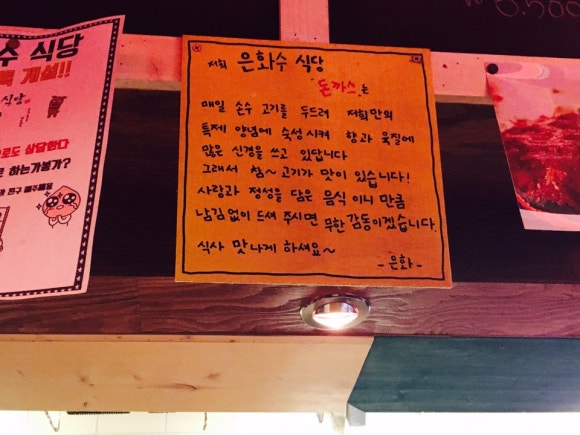 수 식당
개설!!
식당
로도 상담한다
로 하는가봉가?
저희 은화수 식당
돈까스는
매일 손수 고기를 두드려 저희만의
특제 양념에 숙성시켜 향과 육질에
많은 신경을 쓰고 있답니다
그래서 참~ 고기가 맛이 있습니다!
사랑과 정성을 담은 음식 이니 만큼
남김없이 드셔 주시면 무한 감동이겠습니다.
식사 맛나게 하세요~
- 은화 -
6.500